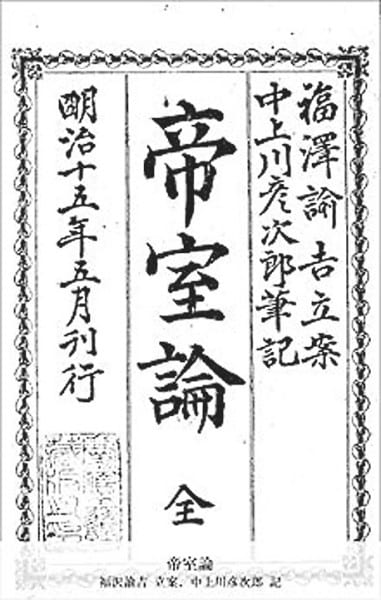 福澤諭吉立案
中上川彦次郎筆記
帝室論
全
明治十五年五月刊行
帝室論
福沢諭吉 立案、中上川彦次郎 記